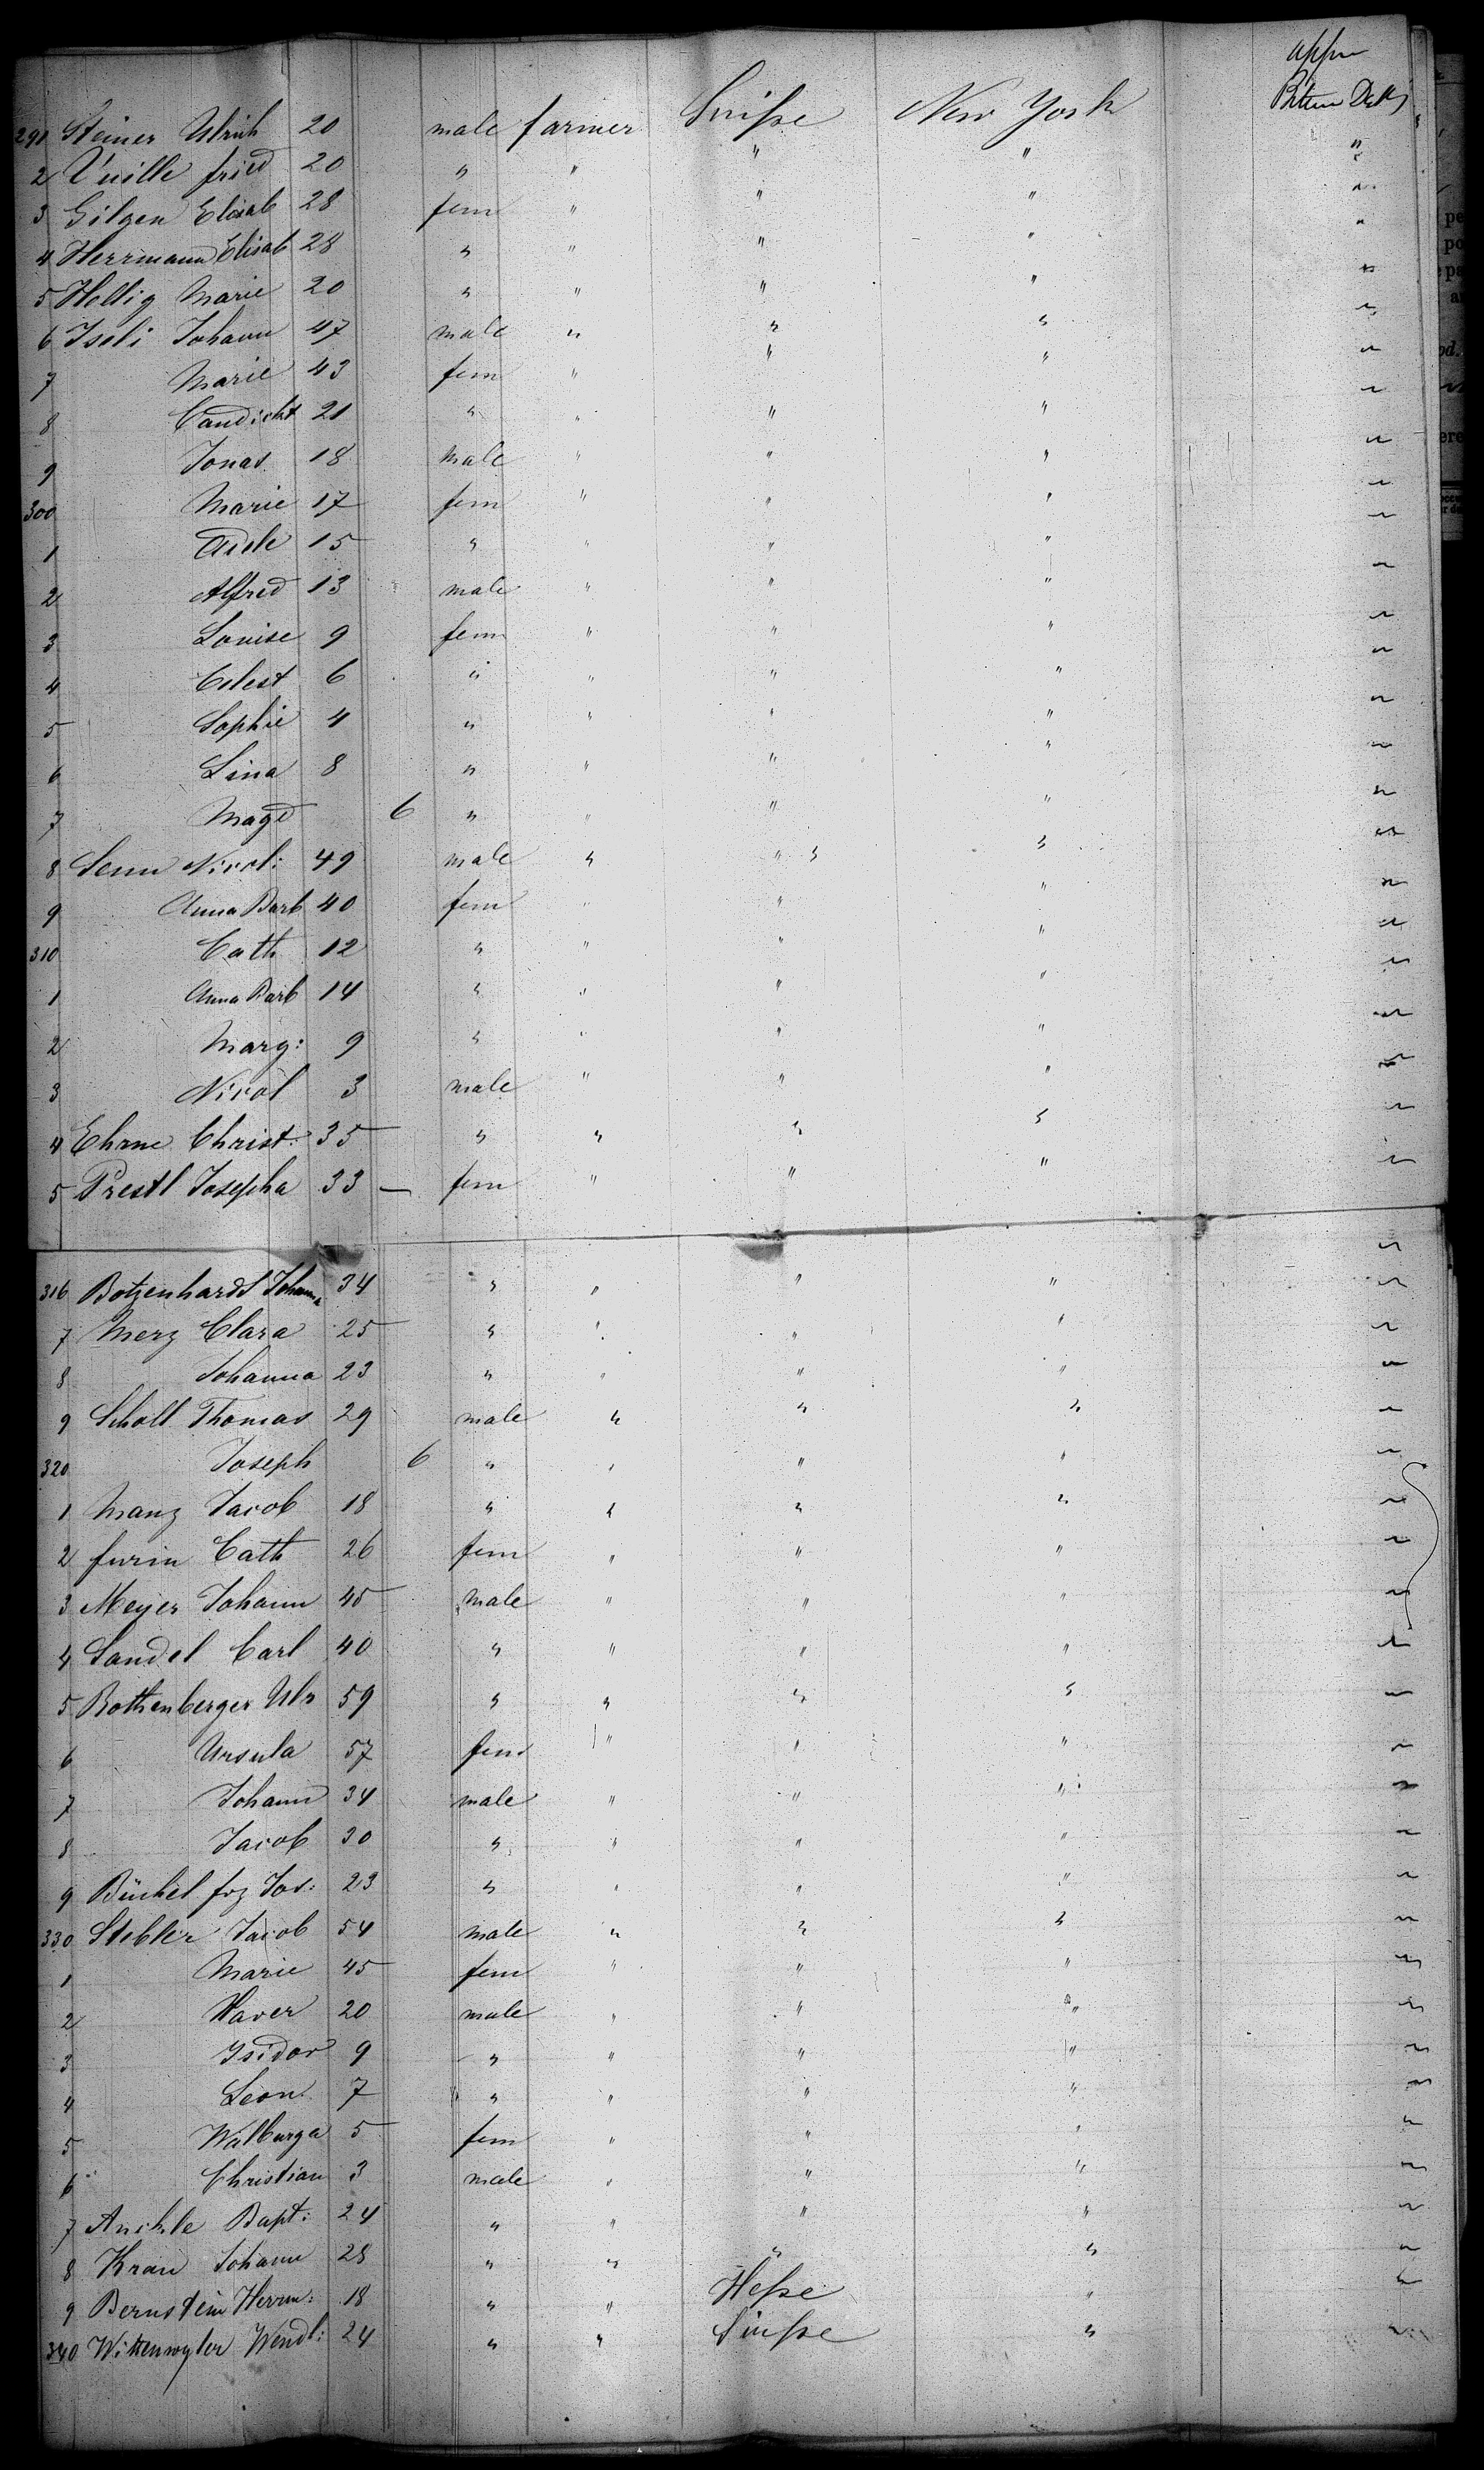 291 Steiner Ulrich 20 male farmer Suisse New York
2 Vuille fried 20 " " " " "
3 Gilgen Elisab 28 fem " " " "
4 Herrmann Elisab 28 " " " " "
5 Hellig Marie 20 " " " " "
6 Iseli Johann 47 male " " " "
7 Marie 43 fem " " " "
8 21 " " " " "
9 Jonas 18 male " " " "
300 Marie 17 fem " " " "
1 15 " " " " "
2 Alfred 13 male " " " "
3 Louise 9 fem " " " "
4 Celest 6 " " " " "
5 Sophie 4 " " " " "
6 Lina 8 " " " " "
7 Magd 6 " " " " "
8 Senn Nicol: 49 male " " " "
9 Anna Barb 40 fem " " " "
310 Cath 12 " " " " "
1 Anna Barb 14 " " " " "
2 Marg: 9 " " " " "
3 Nicol 3 male " " " "
4 Ehrne Christ: 35 " " " " "
5 Prestl Josepha 33 — fem " " " "
316 Botzenhardt Johanna 34 " " " " "
7 Merz Clara 25 " " " " "
8 Johanna 23 " " " " "
9 Scholl Thomas 29 male " " " "
320 Joseph 6 " " " " "
1 Manz Jacob 18 " " " " "
2 furin Cath 26 fem " " " "
3 Meyer Johann 45 male " " " "
4 Sandel Carl 40 " " " " "
5 Rothenberger Ulr 59 " " " " "
6 Ursula 57 fem " " " "
7 Johann 34 male " " " "
8 Jacob 30 " " " " "
9 Büchel frz Jos: 23 " " " " "
330 Stebler Jacob 54 male " " " "
1 Marie 45 fem " " " "
2 Xaver 20 male " " " "
3 Isidor 9 " " " " "
4 Leon 7 " " " " "
5 Walburga 5 fem " " " "
6 Christian 3 male " " " "
7 Bapt: 24 " " " " "
8 Johann 28 " " " " "
9 Bernstein Herrm: 18 " " Hesse " "
340 Wittenwyler Wendl: 24 " " Suisse " "